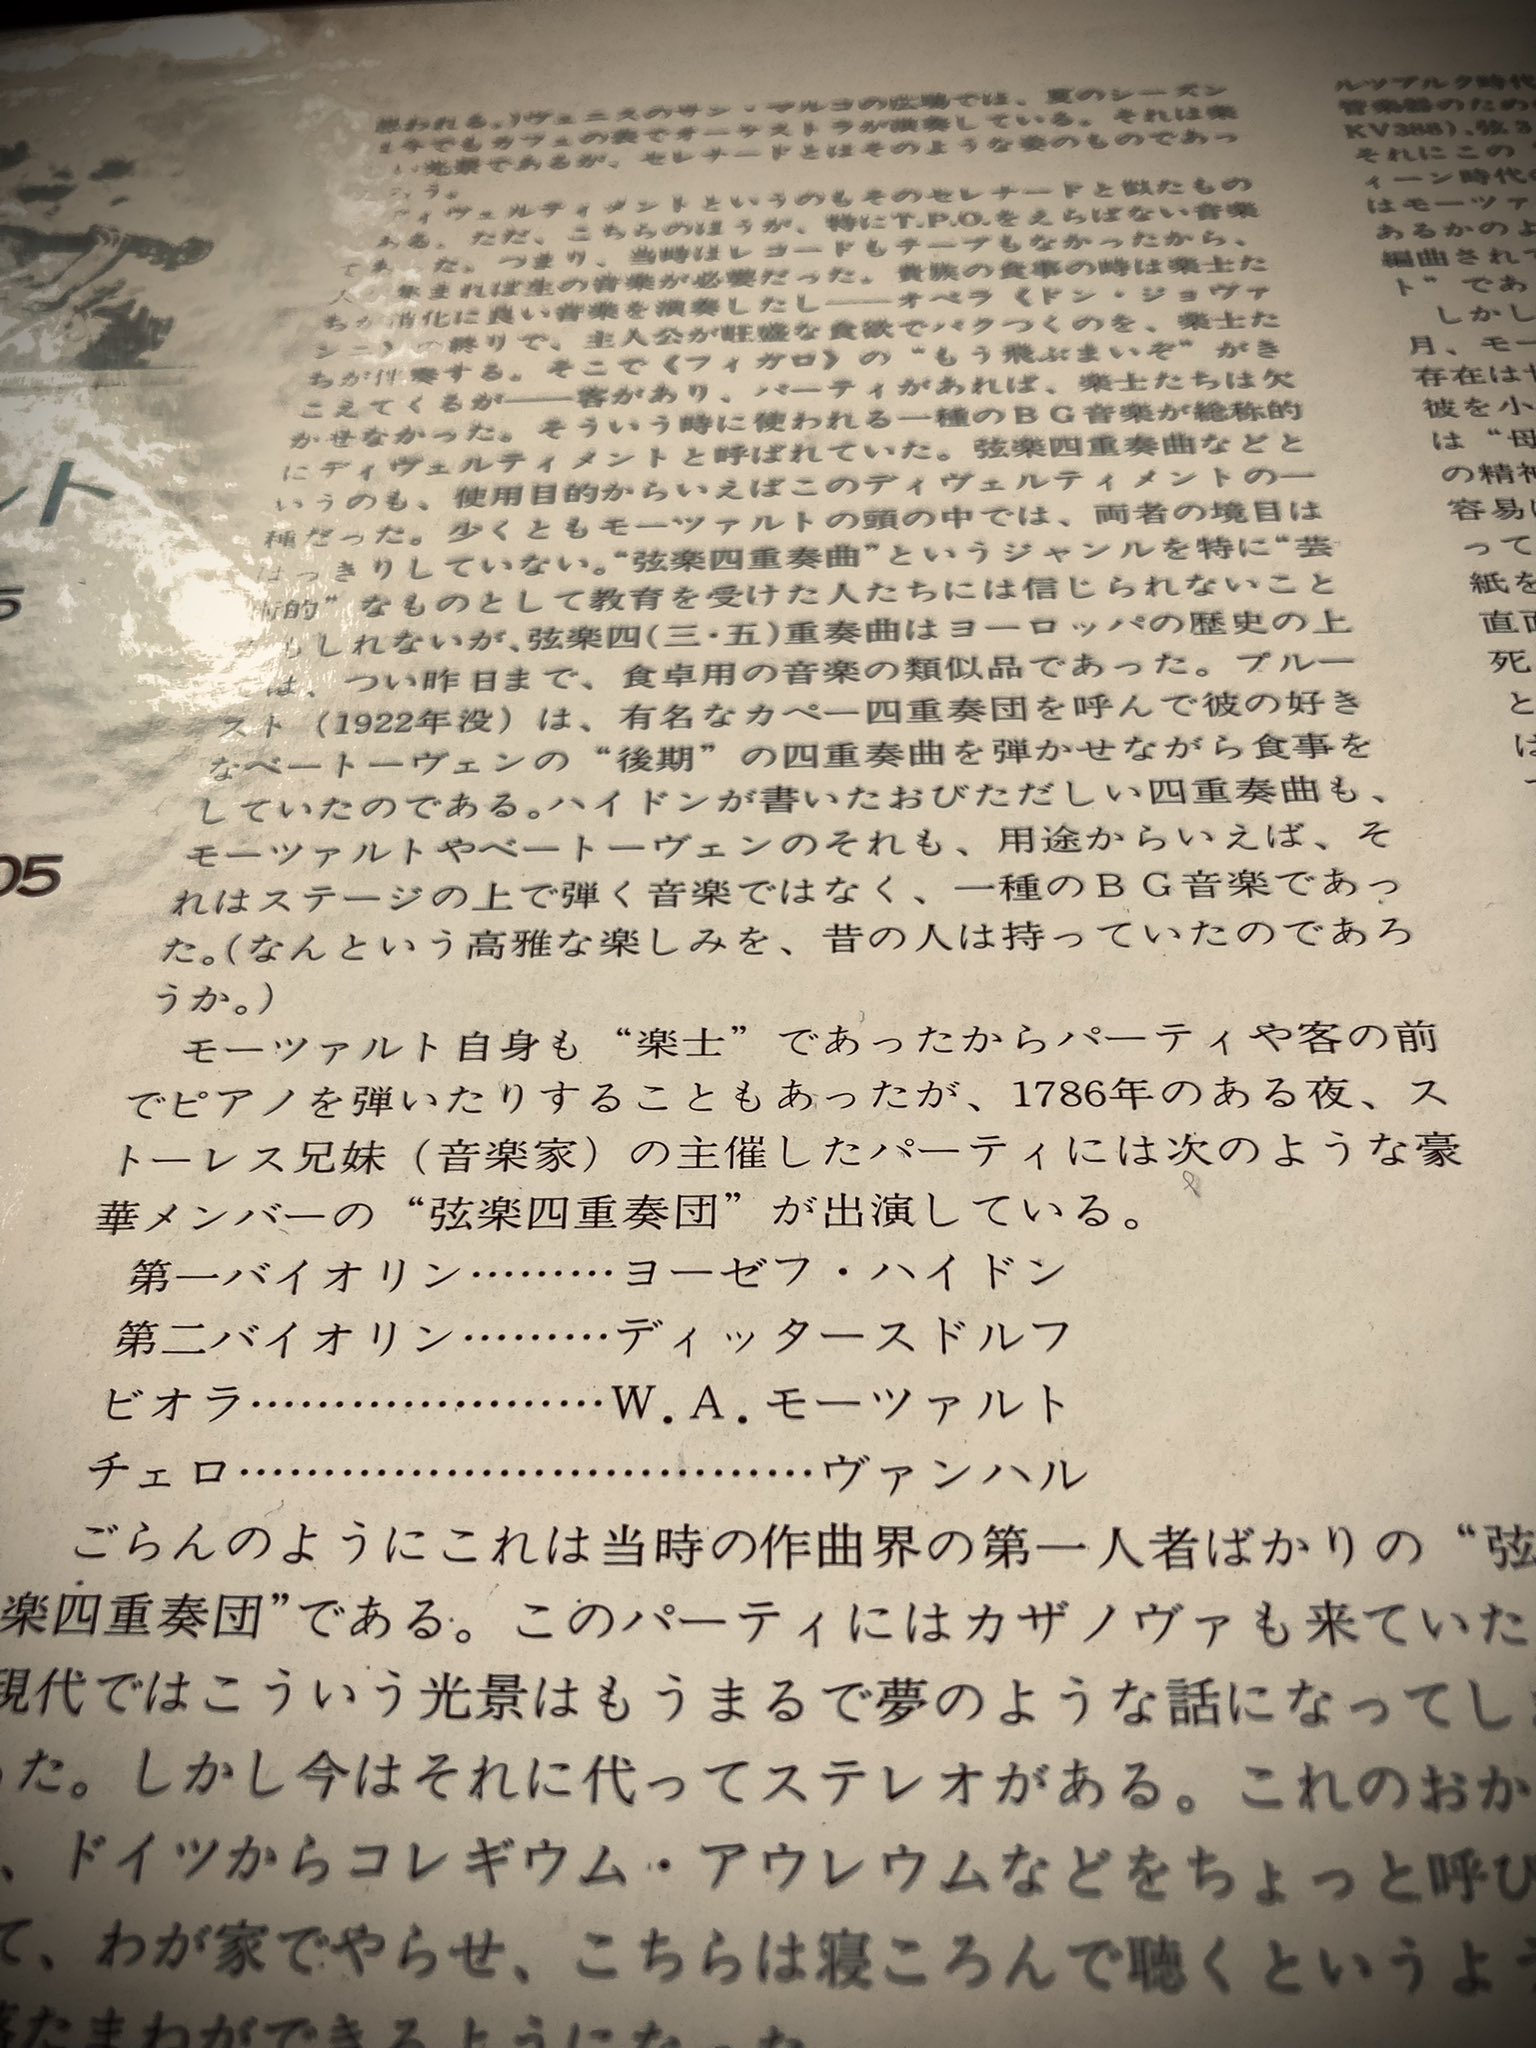 思われる。)ヴェニスのサン・マルコの広場では、夏のシーズン
今でもカフェの表でオーケストラが演奏している。それは楽
い光景であるが、セレナードとはそのような姿のものであっ
ろう。
ディヴェルティメントというのもそのセレナードと似たもの
ある。ただ、こちらのほうが、特にT.P.O.をえらばない音楽
であった。つまり、当時はレコードもテープもなかったから、
人が集まれば生の音楽が必要だった。貴族の食事の時は楽士た
ちが消化に良い音楽を演奏したし――オペラ《ドン・ジョヴァ
ンニ》の終りで、主人公が旺盛な食欲でパクつくのを、楽士た
ちが伴奏する。そこで《フィガロ》の“もう飛ぶまいぞ”がき
こえてくるが――客があり、パーティがあれば、楽士たちは欠
かせなかった。そういう時に使われる一種のＢＧ音楽が総称的
にディヴェルティメントと呼ばれていた。弦楽四重奏曲などと
いうのも、使用目的からいえばこのディヴェルティメントの一
種だった。少くともモーツァルトの頭の中では、両者の境目は
はっきりしていない。“弦楽四重奏曲”というジャンルを特に“芸
術的”なものとして教育を受けた人たちには信じられないこと
もしれないが、弦楽四(三・五)重奏曲はヨーロッパの歴史の上
は、つい昨日まで、食卓用の音楽の類似品であった。プルー
スト（1922年没）は、有名なカペー四重奏団を呼んで彼の好き
なベートーヴェンの“後期”の四重奏曲を弾かせながら食事を
していたのである。ハイドンが書いたおびただしい四重奏曲も、
モーツァルトやベートーヴェンのそれも、用途からいえば、そ
れはステージの上で弾く音楽ではなく、一種のＢＧ音楽であっ
た。(なんという高雅な楽しみを、昔の人は持っていたのであろ
うか。)
モーツァルト自身も“楽士”であったからパーティや客の前
でピアノを弾いたりすることもあったが、1786年のある夜、ス
トーレス兄妹（音楽家）の主催したパーティには次のような豪
華メンバーの“弦楽四重奏団”が出演している。
第一バイオリン………ヨーゼフ・ハイドン
第二バイオリン………ディッタースドルフ
ビオラ…………………W.A.モーツァルト
チェロ……………………………ヴァンハル
ごらんのようにこれは当時の作曲界の第一人者ばかりの“弦
楽四重奏団”である。このパーティにはカザノヴァも来ていた
現代ではこういう光景はもうまるで夢のような話になってしま
った。しかし今はそれに代ってステレオがある。これのおか
、ドイツからコレギウム・アウレウムなどをちょっと呼び
て、わが家でやらせ、こちらは寝ころんで聴くというよう
たまわができるようになった
ント
5
05
ルツブルク時代
管楽器のため
KV388)、弦3
それにこの
ィーン時代の
はモーツァ
あるかのよ
編曲されて
ト”であ
しかし
月、モー
存在は
彼を小
は“母
の精神
容易に
って
紙を
直面
死
と
は